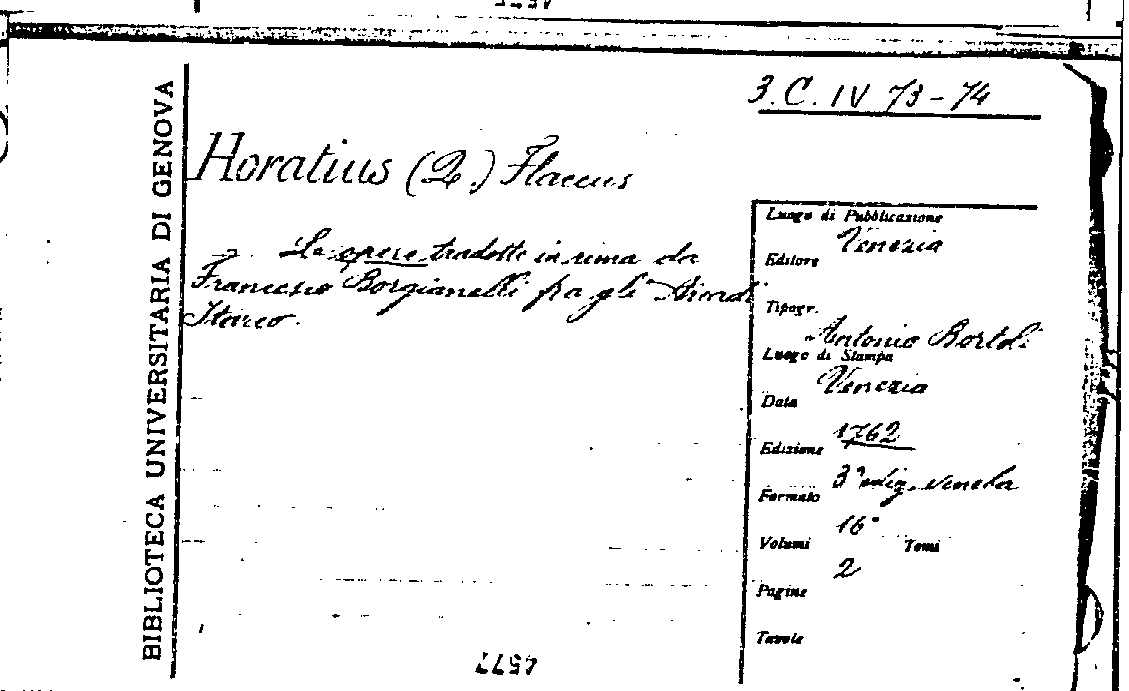 BIBLIOTECA UNIVERSITARIA DI GENOVA
3.C. IV 73-74
Horatius (Q.) Flaccus
Le opere tradotte in rima da
Francesco Borgianelli fra gli Arcadi
Itarco.
Luogo di Pubblicazione
Venezia
Editore
Tipogr.
Antonio Bortoli
Luogo di Stampa
Venezia
Data
1762
Edizione
3ª ediz. veneta
Formato
16°
Volumi Tomi
2
Pagine
Tavole
4577